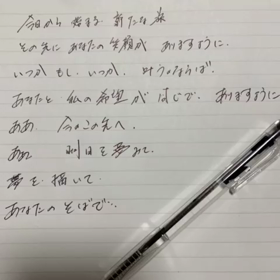 今日から 始まる 新たな 旅
その先に あなたの 笑顔が ありますように.
いつか もし、いつか、叶うのならば.
あなたと 私の希望が 同じで、ありますように
ああ 今のこの先へ.
ああ 明日を夢みて.
夢を 描いて
あなたの そばで…